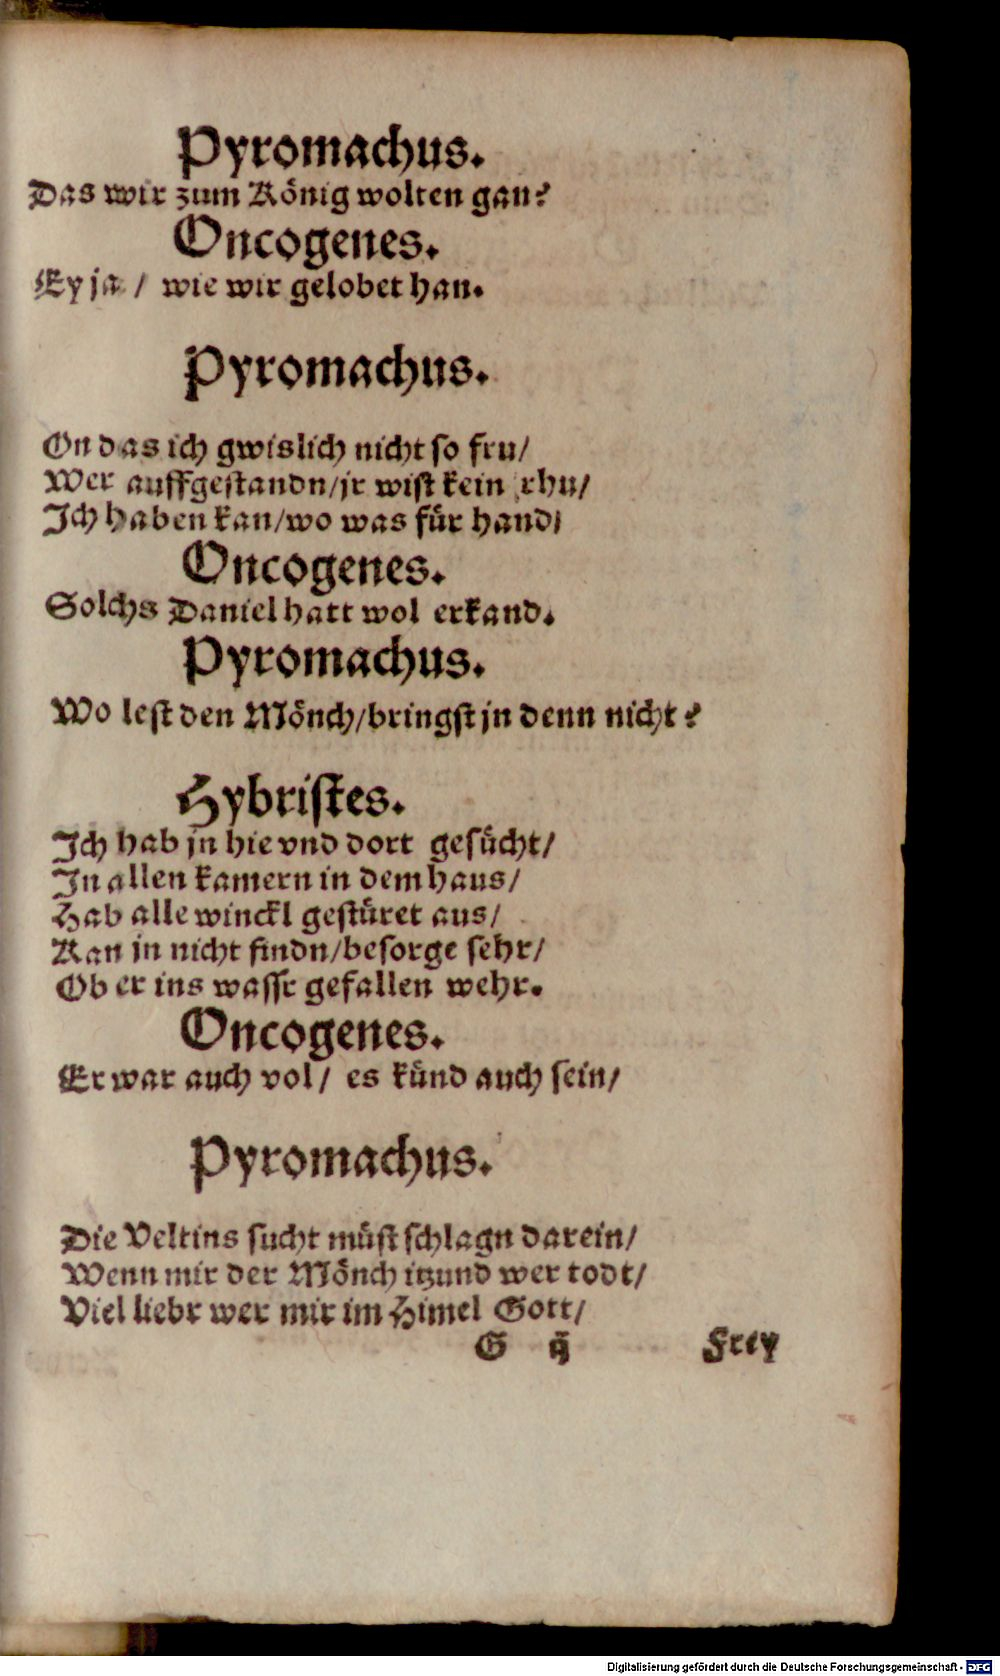 Pyromachus.
Das wir zum König wolten gan?
Oncogenes.
Ey ja / wie wir gelobet han.
Pyromachus.
On das ich gwislich nicht so fru/
Wer auffgestandn/jr wist kein rhu/
Ich haben kan/wo was für hand/
Oncogenes.
Solchs Daniel hatt wol erkand.
Pyromachus.
Wo lest den Mönch/bringst jn denn nicht?
Hybristes.
Ich hab jn hie vnd dort gesücht/
In allen kamern in dem haus/
Hab alle winckl gestüret aus/
Kan jn nicht findn/besorge sehr/
Ob er ins wassr gefallen wehr.
Oncogenes.
Er war auch vol/ es künd auch sein/
Pyromachus.
Die Veltins sucht müst schlagn darein/
Wenn mir der Mönch itzund wer todt/
Viel liebr wer mir im Himel Gott/
G ij Frey
Digitalisierung gefördert durch die Deutsche Forschungsgemeinschaft - DFG